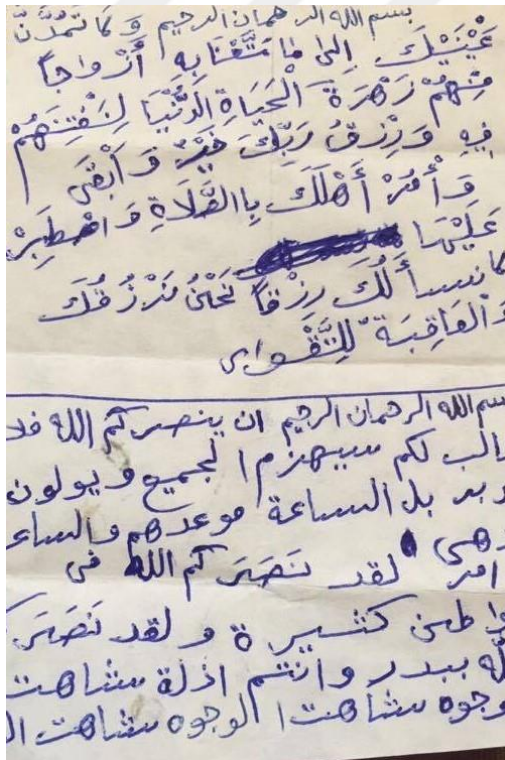 بسم الله الرحمان الرحيم وَ لَا تَمُدَّنَّ
عَيْنَيْكَ إِلَىٰ مَا مَتَّعْنَا بِهِ أَزْوَاجاً
مِنْهُمْ زَهْرَةَ الْحَيَاةِ الدُّنْيَا لِنَفْتِنَهُمْ
فِيهِ وَ رِزْقُ رَبِّكَ خَيْرٌ وَ أَبْقَى
وَ أْمُرْ أَهْلَكَ بِاالصَّلَاةِ وَ اصْطَبِرْ
عَلَيْهَا
لانسأَلُكَ رِزْقاً نَحْنُ نَرْزُقُكَ
وَ الْعَاقِبَة لِلتَّقْوای
بسم الله الرحمان الرحيم ان ينصركم الله فلا
الب لكم سيهزم الجميع و يولون
دبر بل الساعة موعدهم والساع
دهى امر لقد نَصَرَكم الله فى
واطن كثيرة و لقد نَصَرَك
له ببدر وانتم اذلة شاهت
وجوه شاهت الوجوه شاهت ال